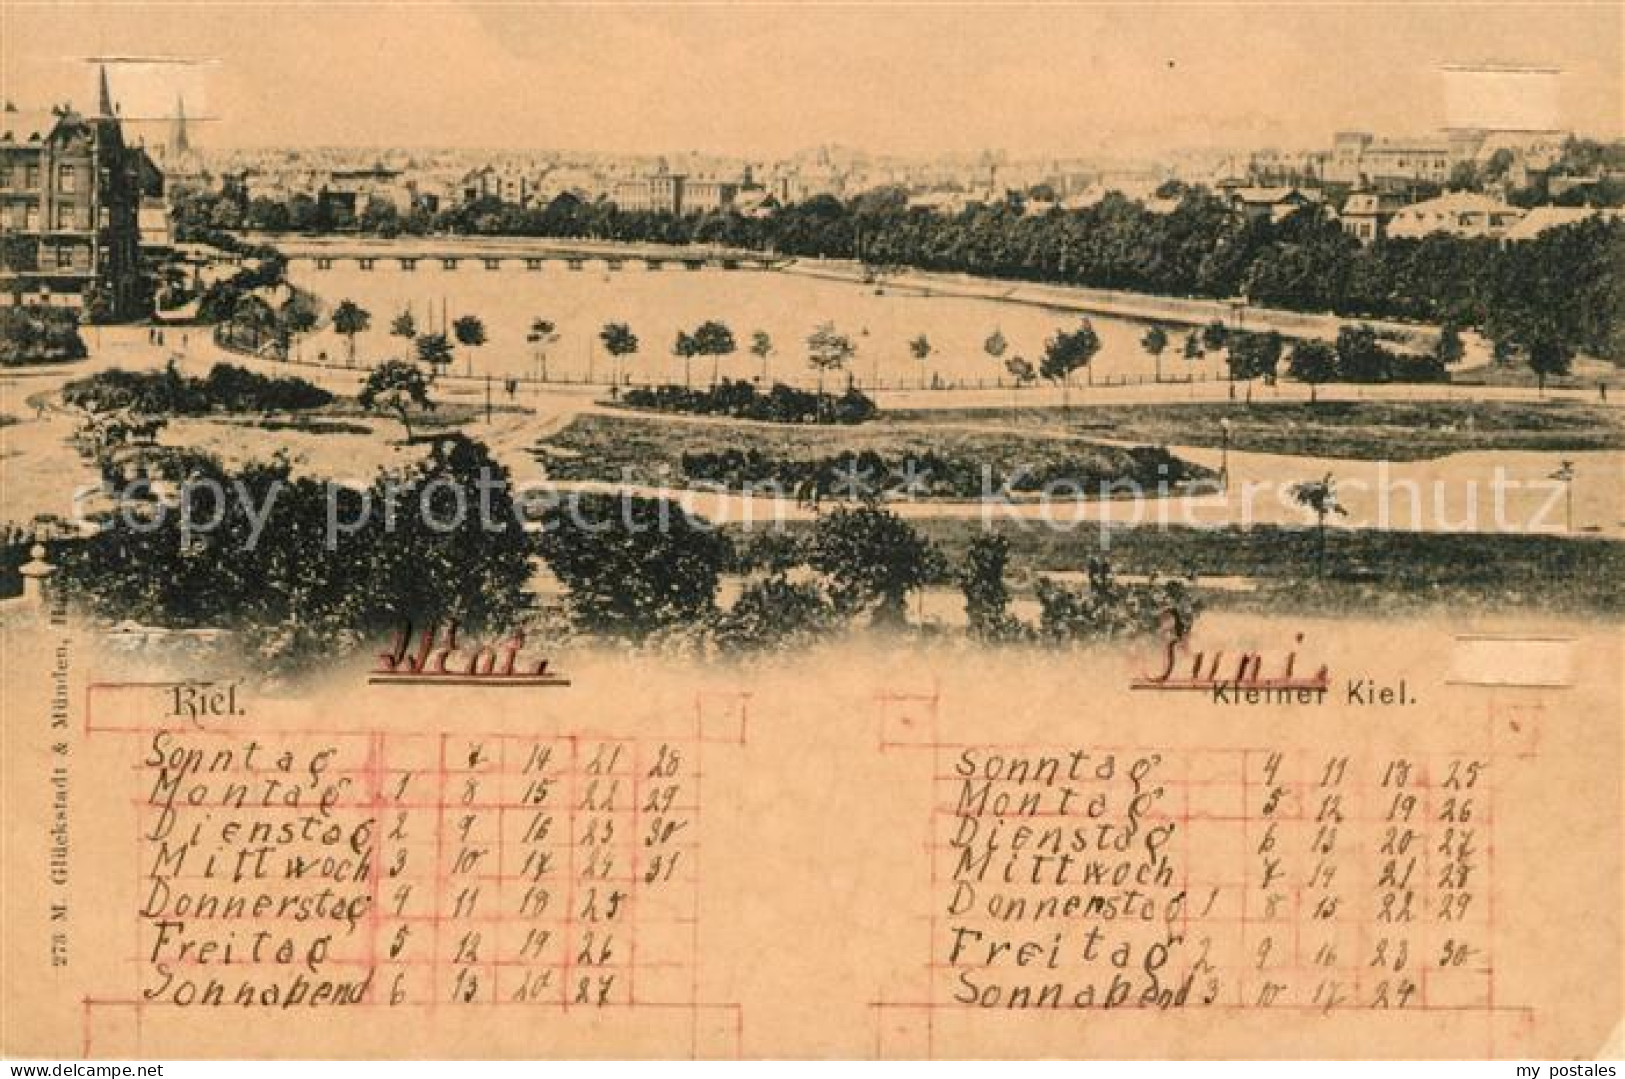 copy protection ** Kopierschutz
Juni.
Kiel.
Kleiner Kiel.
273 M. Glückstadt & Münden,
Sonntag 7 14 21 28
Montag 1 8 15 22 29
Dienstag 2 9 16 23 30
Mittwoch 3 10 17 24 31
Donnerstag 4 11 18 25
Freitag 5 12 19 26
Sonnabend 6 13 20 27
Sonntag 4 11 18 25
Montag 5 12 19 26
Dienstag 6 13 20 27
Mittwoch 7 14 21 28
Donnerstag 1 8 15 22 29
Freitag 2 9 16 23 30
Sonnabend 3 10 17 24
delcampe.net
my_postales